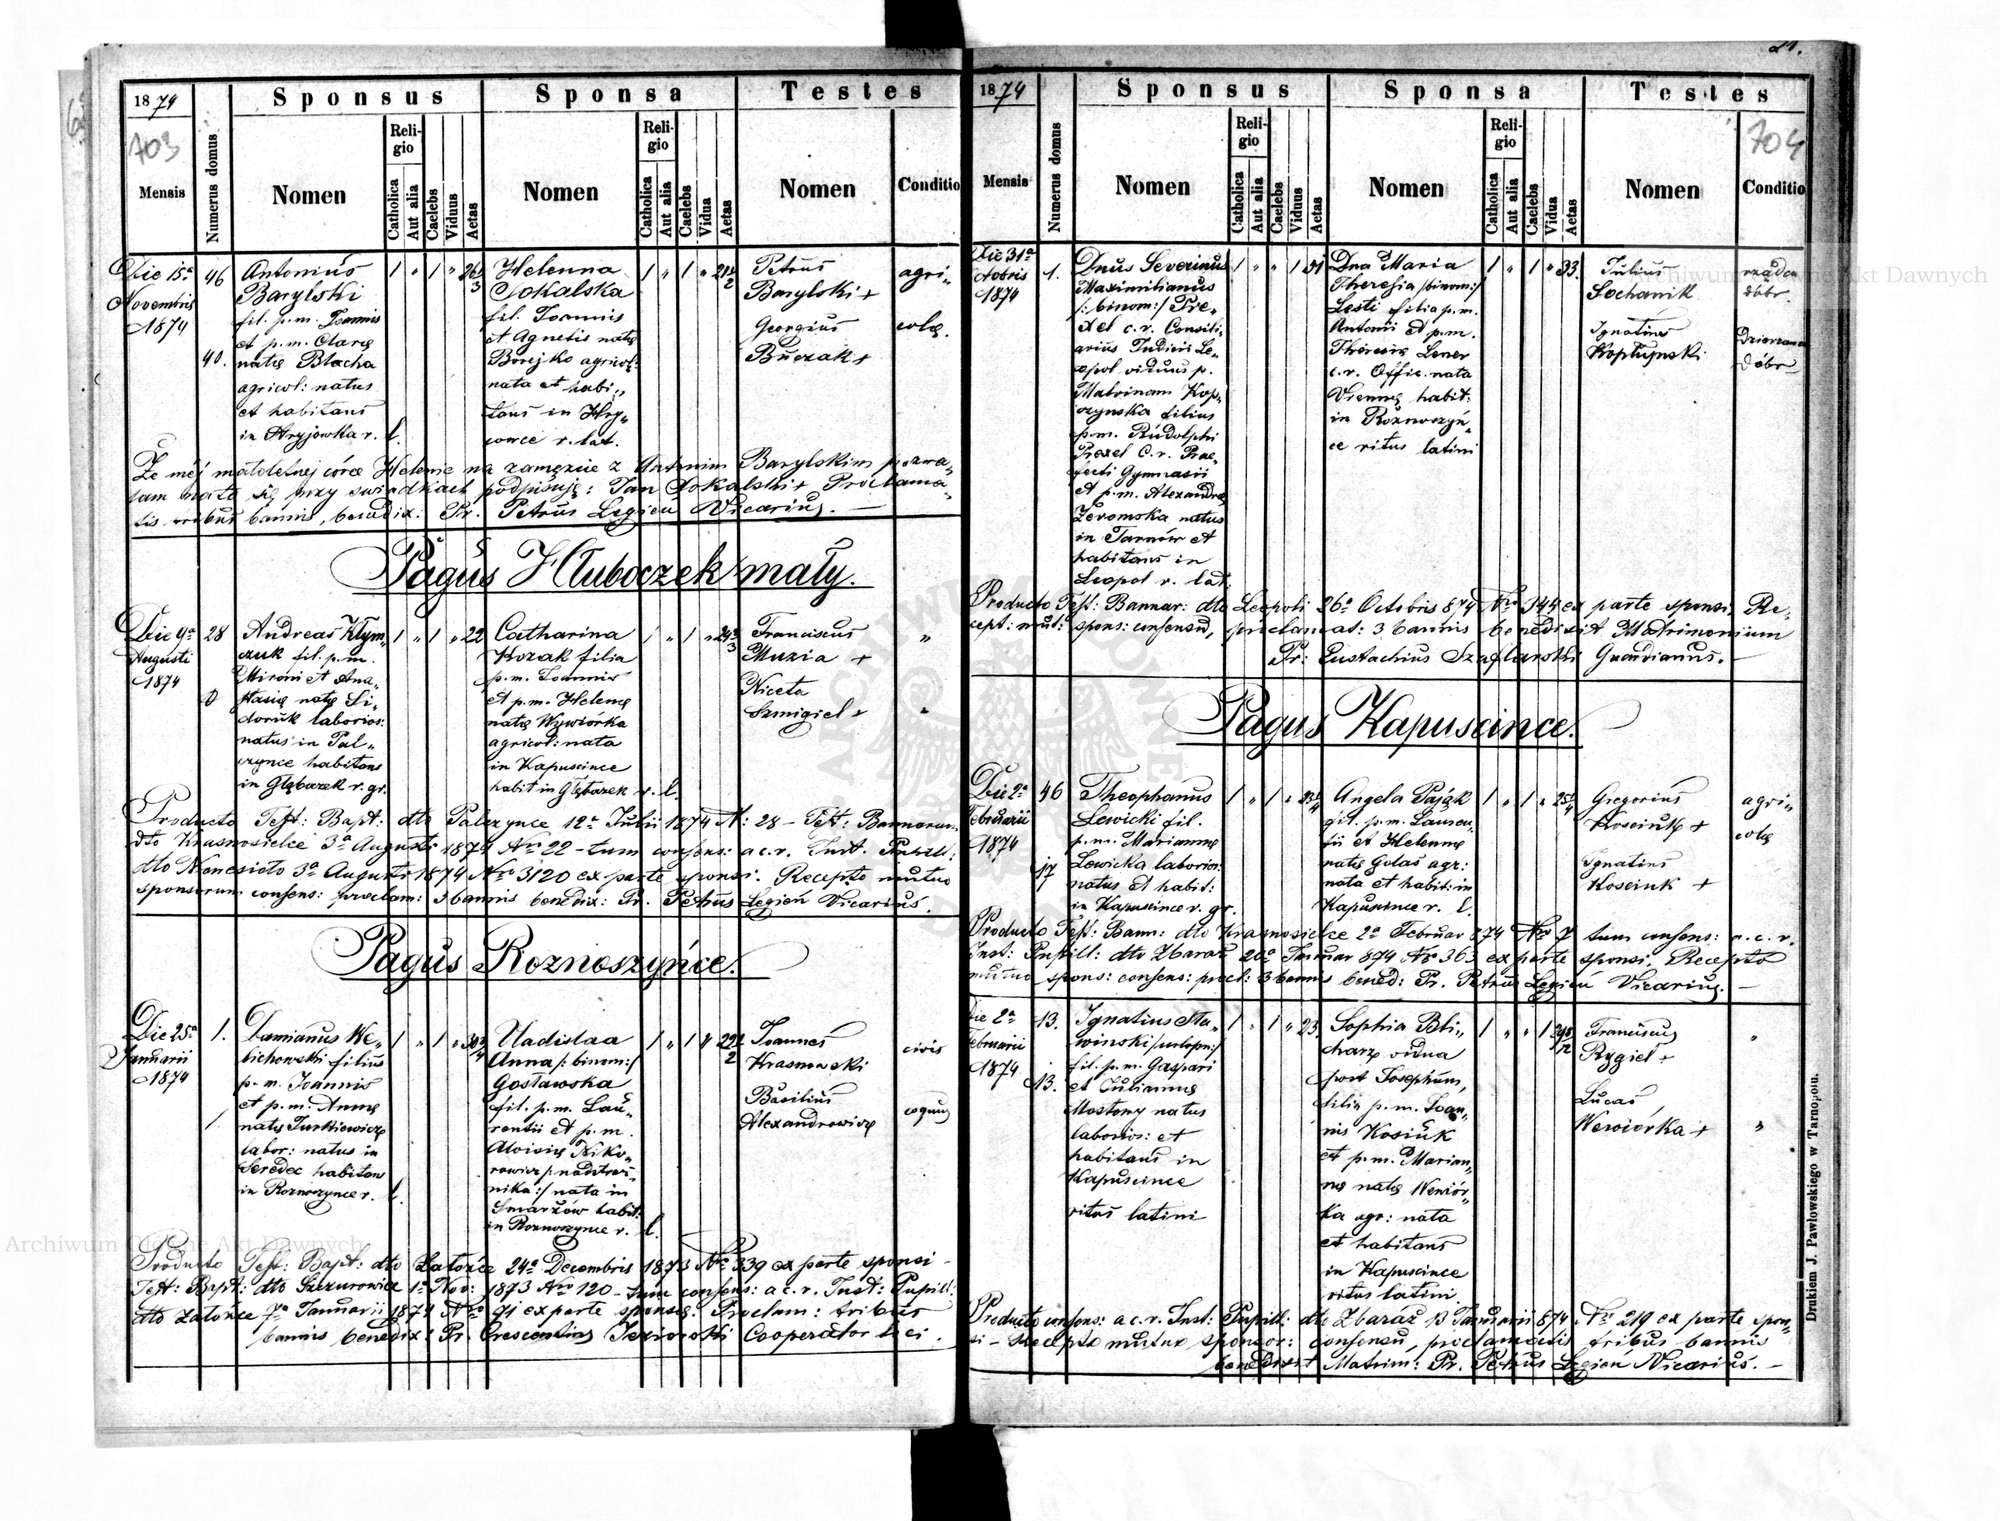 1874
Sponsus Sponsa Testes
703
Mensis
Numerus domus
Nomen
Religio
Catholica
Aut alia
Caelebs
Viduus
Aetas
Nomen
Religio
Catholica
Aut alia
Caelebs
Vidua
Aetas
Nomen
Conditio
Die 15a
Novembris
1874
46
40.
Antonius
Barylski
fil. p. m. Joannis
et p. m. Clarę
natę Blacha
agricol: natus
et habitans
in Hryjowka r. l.
Helenna
Sokalska
fil. Joannis
et Agnetis natę
Borejko agricol:
nata et habi„
tans in Hry„
r. lat.
Petrus
Barylski +
Georgius
Buczak +
agri„
colę.
Że mej małoletnej córce Helenie na zamęzcie z Antonim Barylskim pozwa„
lam mate się przy swiadkach podpisuję: Jan Sokalski + Proclama„
tis tribus bannis, benedix: Pr. Petrus Legień Vicarius. —
Pagus Hłuboczek mały.
Die 9a
Augusti
1874
28
Andreas Kłym„
czuk fil. p. m.
Mironi et Ana„
stasię natę Si„
doruk laborios:
natus in Pal„
czynce habitans
in Głęboczek r. gr.
1 „ 1 „ 22
Catharina
Kozak filia
p. m. Joannis
et p. m. Helenę
natę Wywiórka
agricol: nata
in Kapuscince
habit in Głęboczek r. l.
Franciscus
Muzia +
Niceta
Szmigiel +
Producto Test: Bapt: dto Palczynce 12a Julii 1874 N: 28 — Test: Bannorum
dto Krasnosielce 3a Augusti 1874 Nro 22 — tum consens: a c. r. Inst. Pupill:
dto Nowesioło 3a Augusti 1874 Nro 3120 ex parte sponsi. Recepto mutuo
sponsorum consens: proclam: 3 bannis benedix: Pr. Petrus Legień Vicarius.
Pagus Roznoszyńce.
Die 25a
Januarii
1874
1.
Damianus We„
bichowski filius
p. m. Joannis
et p. m. Annę
natę Turkiewicz
labor: natus in
Seredec habitans
in Roznoszynce r. l.
Vladislaa
Anna /: binom :/
Gosławska
fil. p. m. Lau„
rentii et p. m.
Aloisię Niko„
rowicz /: nadstraż„
nika :/ nata in
Smarżów habit:
in Roznoszynce r. l.
Joannes
Krasnowski
Basilius
Alexandrowicz
civis
coquus
Producto Test: Bapt: dto Załoźce 24a Decembris 1873 Nro 339 ex parte sponsi —
Test: Bapt: dto Szczurowice 1a Nov: 1873 Nro 120 — tum consens: a c. r. Inst: Pupill:
dto Załoźce 7a Januarii 1874 Nro 91 ex parte sponsę. Proclam: tribus
bannis benedix: Pr. Crescentius Jeziorski Cooperator loci.
21.
1874
Sponsus Sponsa Testes
704
Mensis
Numerus domus
Nomen
Religio
Catholica
Aut alia
Caelebs
Viduus
Aetas
Nomen
Religio
Catholica
Aut alia
Caelebs
Vidua
Aetas
Nomen
Conditio
Die 31a
Octobris
1874
1.
Dnus Severinus
Maximilianus
/: binom :/ Pre„
xel c. r. Consili„
arius Judicii Le„
opol viduus p.
Malvinam Kop„
czynska filius
p. m. Rudolphi
Prexel c. r. Prae„
fecti Gymnasii
et p. m. Alexandrę
Żeromska natus
in Tarnów et
habitans in
Leopol r. lat.
Dna Maria
Theresia /binom:/
Lesti filia p. m.
Antonii et p. m.
Theresię Lener
c. r. Offic. nata
Viennę habit:
in Rożnoszyń„
ce ritus latini
1 „ 1 „ 33.
Julius
Sochanik
Ignatius
rządca
dóbr.
Dzierzawca
dóbr
Producto Test: Bannor: dto Leopoli 26a Octobris 874 Nro 344 ex parte sponsi. Re„
cept: mut: spons: consensu, proclamat: 3 bannis benedixit Matrimonium
Pr: Eustachius Szaflarski Guardianus. —
Pagus Kapuscince.
Die 2a
Februarii
1874
46
17
Theophanus
Lewicki fil.
p. m. Mariannę
Lewicka laborios:
natus et habit:
in Kapuscince r. gr.
Angela Pająk
fil. p. m. Lauren„
tii et Helennę
natę Golaś agr:
nata et habit: in
Kapuscince r. l.
Gregorius
Kosciuk +
Ignatius
Kosciuk +
agri„
colę
Producto Test: Bann: dto Krasnosielce 2a Februar 874 Nro 7 tum consens: a. c. r.
Inst: Pupill: dto Zbaraż 20a Januar 874 Nro 363 ex parte sponsi. Recepto
mutuo spons: consens: procl: 3 bannis bened: Pr. Petrus Legień Vicarius. —
Die 2a
Februarii
1874
13.
13.
Ignatius Sta„
winski
fil. p. m. Gaspari
et Juliannę
Mostowy natus
laborios: et
habitans in
Kapuscince
ritus latini
1 „ 1 „ 23
Sophia Bli„
charz vidua
post Josephum,
filia p. m. Joan„
nis Kosiuk
et p. m. Marian„
nę natę Wewiór„
ka agr: nata
et habitans
in Kapuscince
ritus latini.
Franciscus
Rygiel +
Lucas
Wewiórka +
Producto consens: a c. r. Inst: Pupill: dto Zbaraż 13 Januarii 874 Nro 219 ex parte spon„
si — Recepto mutuo sponsor: consensu, proclamatis tribus bannis
benedixit Matrim: Pr. Petrus Legień Vicarius. —
Drukiem J. Pawłowskiego w Tarnopolu.